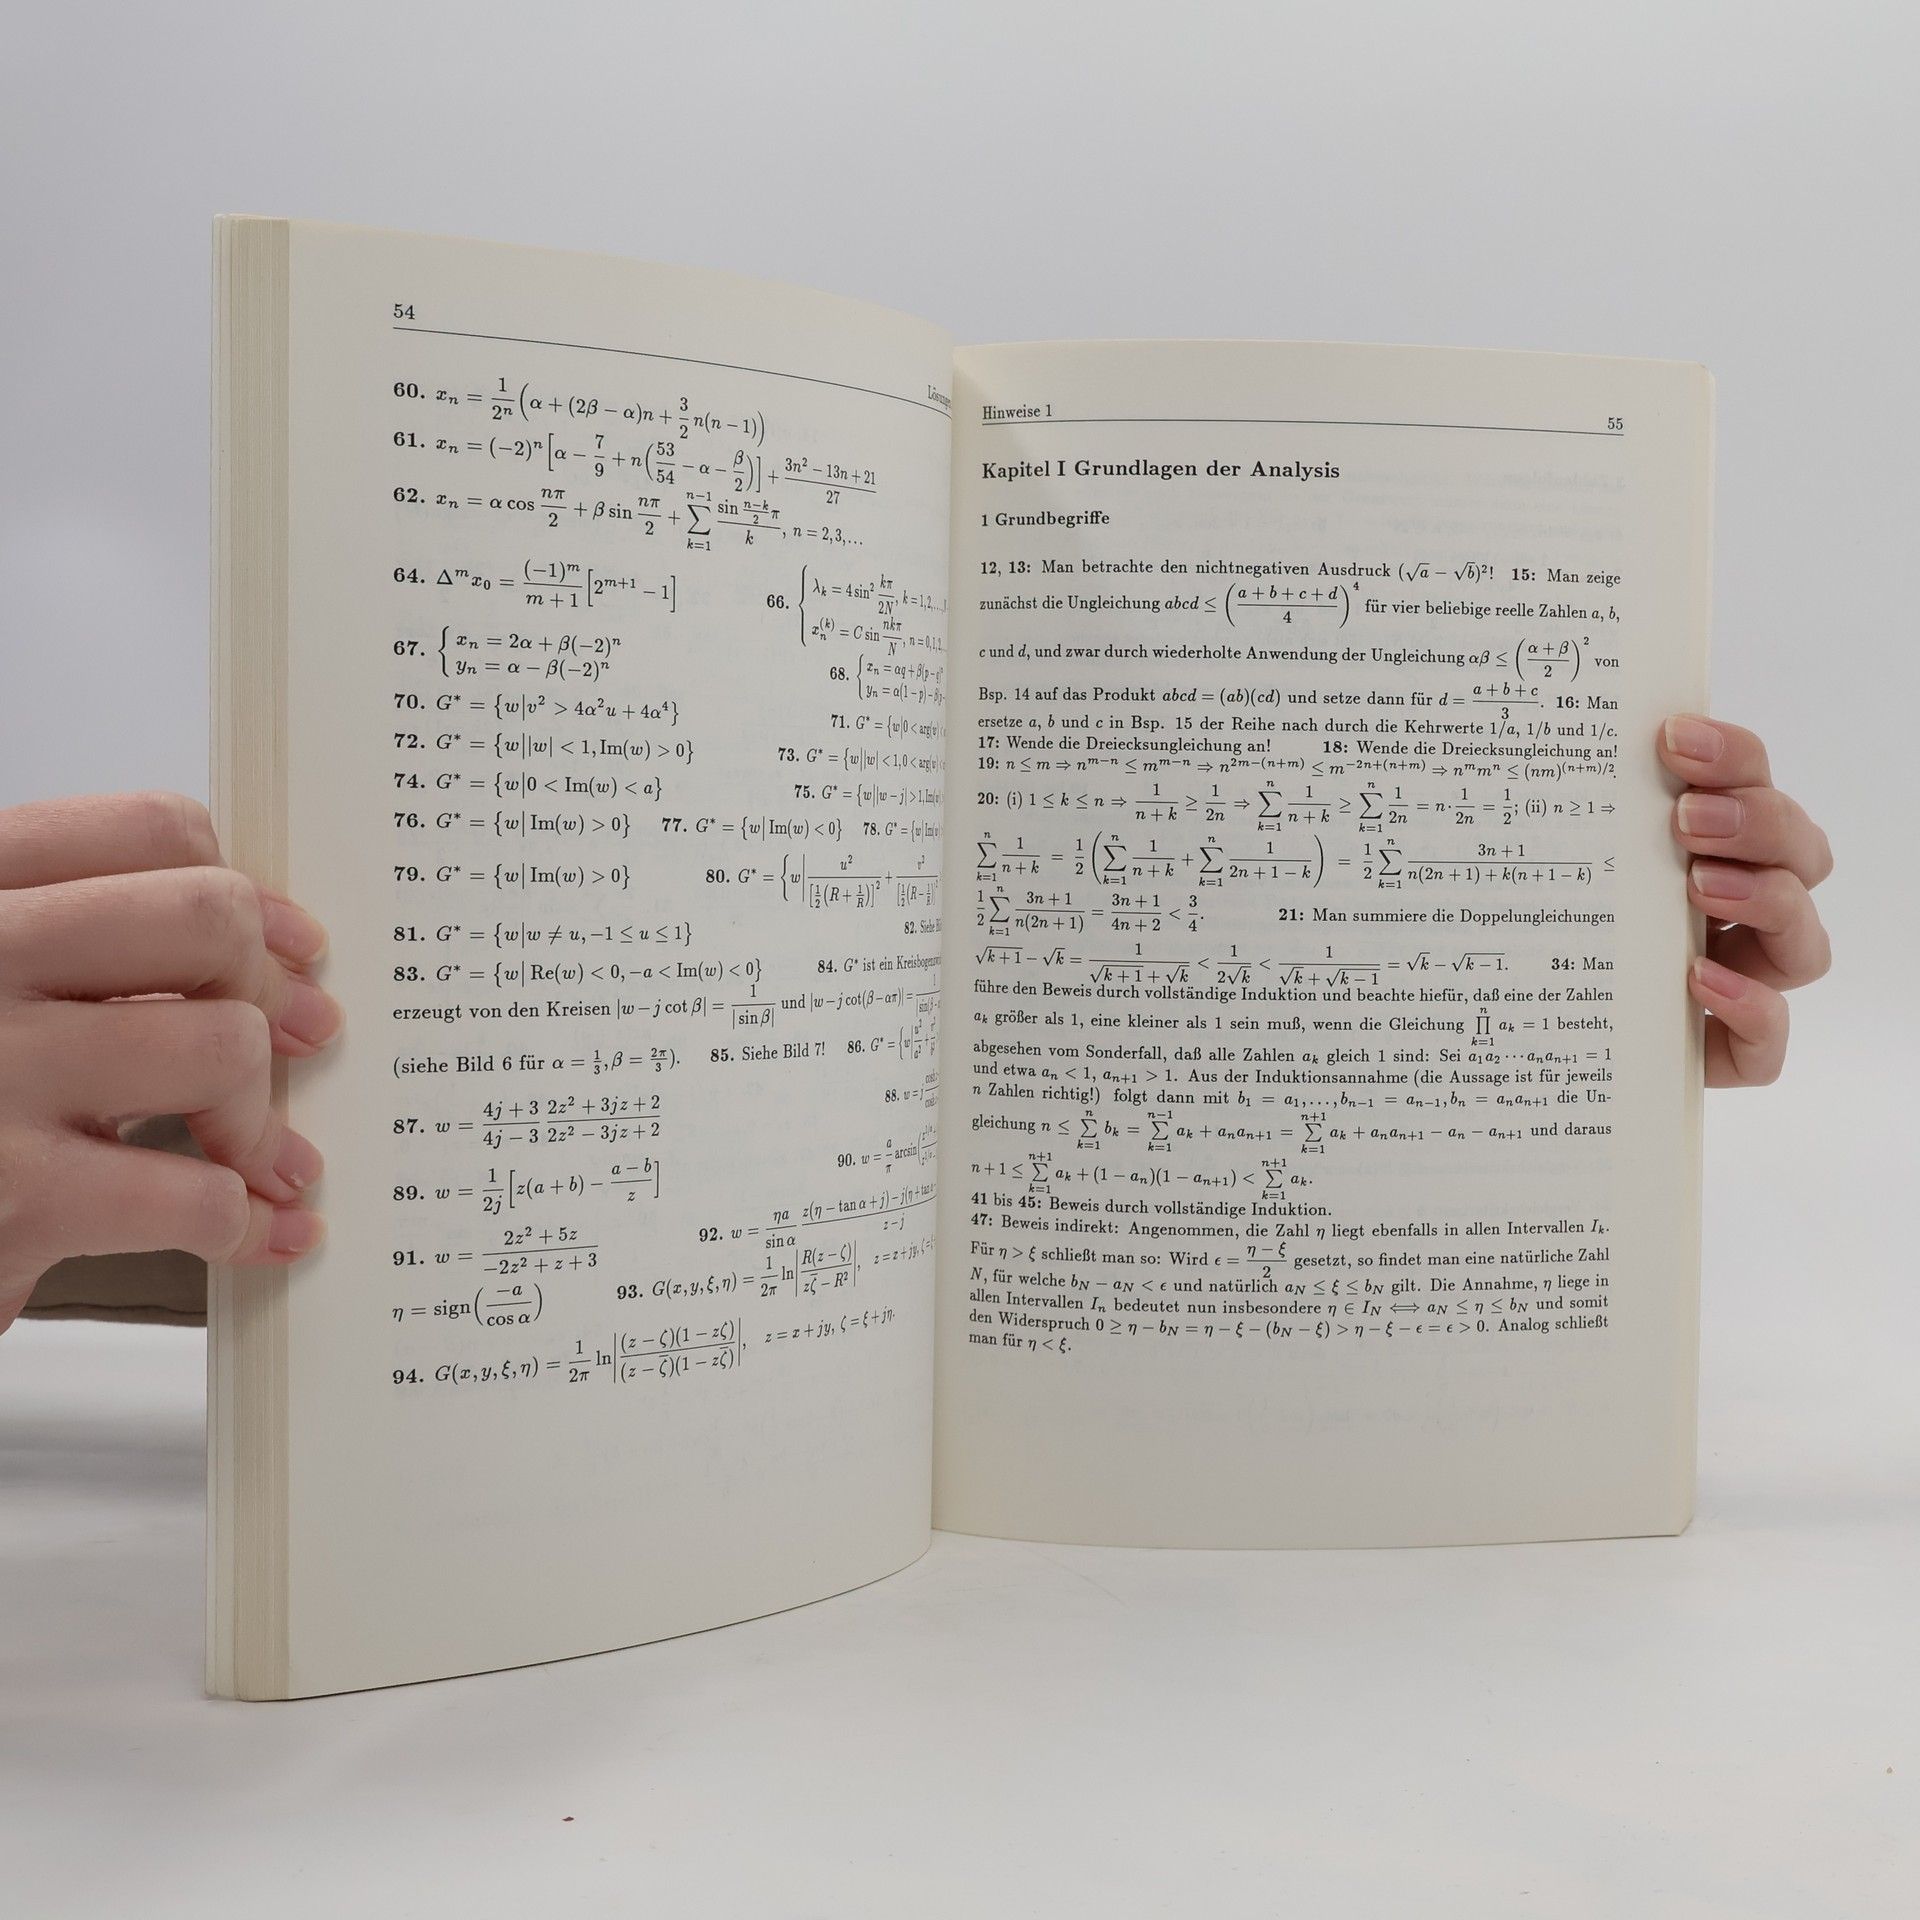 54
60. xₙ = 1/2ⁿ (α + (2β − α)n + 3/2 n(n − 1))
61. xₙ = (−2)ⁿ[α − 7/9 + n(53/54 − α − β/2)] + (3n² − 13n + 21)/27
62. xₙ = α cos nπ/2 + β sin nπ/2 + ∑_{k=1}^{n−1} (sin (n−k)/2 π)/k, n = 2,3,...
64. Δᵐx₀ = (−1)ᵐ/(m + 1) [2ᵐ⁺¹ − 1] 66. { λₖ = 4 sin² kπ/2N, k = 1,2,...,
xₙ⁽ᵏ⁾ = C sin nkπ/N, n = 0,1,2,
67. { xₙ = 2α + β(−2)ⁿ
yₙ = α − β(−2)ⁿ
68. { xₙ = αq + β(p −
yₙ = α(1 − p) − β
70. G* = {w|v² > 4α²u + 4α⁴}
71. G* = {w|0 < arg(w)
72. G* = {w||w| < 1, Im(w) > 0} 73. G* = {w||w| < 1, 0 < arg(w)
74. G* = {w|0 < Im(w) < a} 75. G* = {w||w − j| > 1, Im(
76. G* = {w| Im(w) > 0} 77. G* = {w| Im(w) < 0} 78. G* = {w| Im(
79. G* = {w| Im(w) > 0} 80. G* = {w| u²/[½(R + 1/R)]² + v²/[½(R − 1/R)]²
81. G* = {w|w ≠ u, −1 ≤ u ≤ 1} 82. Siehe
83. G* = {w| Re(w) < 0, −a < Im(w) < 0} 84. G* ist ein
erzeugt von den Kreisen |w − j cot β| = 1/|sin β| und |w − j cot(β − απ)| =
(siehe Bild 6 für α = 1/3, β = 2π/3). 85. Siehe Bild 7! 86. G* = {w| u²/a² +
87. w = (4j + 3)/(4j − 3) (2z² + 3jz + 2)/(2z² − 3jz + 2) 88. w = j
89. w = 1/2j [z(a + b) − (a − b)/z] 90. w = a/π arcsin
91. w = (2z² + 5z)/(−2z² + z + 3) 92. w = ηa/sin α (z(η − tan α + j) − j(η + tan /(z − j)
η = sign(−a/cos α) 93. G(x, y, ξ, η) = 1/2π ln|R(z − ζ)/(zζ̄ − R²)|, z = x + jy, ζ =
94. G(x, y, ξ, η) = 1/2π ln|(z − ζ)(1 − zζ)/(z − ζ̄)(1 − zζ̄)|, z = x + jy, ζ = ξ + jη.
Hinweise 1 55
Kapitel I Grundlagen der Analysis
1 Grundbegriffe
12, 13: Man betrachte den nichtnegativen Ausdruck (√a − √b)²! 15: Man zeige
zunächst die Ungleichung abcd ≤ ((a + b + c + d)/4)⁴ für vier beliebige reelle Zahlen a, b,
c und d, und zwar durch wiederholte Anwendung der Ungleichung αβ ≤ ((α + β)/2)² von
Bsp. 14 auf das Produkt abcd = (ab)(cd) und setze dann für d = (a + b + c)/3. 16: Man
ersetze a, b und c in Bsp. 15 der Reihe nach durch die Kehrwerte 1/a, 1/b und 1/c.
17: Wende die Dreiecksungleichung an! 18: Wende die Dreiecksungleichung an!
19: n ≤ m ⇒ nᵐ⁻ⁿ ≤ mᵐ⁻ⁿ ⇒ n²ᵐ⁻⁽ⁿ⁺ᵐ⁾ ≤ m⁻²ⁿ⁺⁽ⁿ⁺ᵐ⁾ ⇒ nᵐmⁿ ≤ (nm)⁽ⁿ⁺ᵐ⁾/².
20: (i) 1 ≤ k ≤ n ⇒ 1/(n + k) ≥ 1/2n ⇒ ∑_{k=1}^{n} 1/(n + k) ≥ ∑_{k=1}^{n} 1/2n = n · 1/2n = 1/2; (ii) n ≥ 1 ⇒
∑_{k=1}^{n} 1/(n + k) = 1/2 (∑_{k=1}^{n} 1/(n + k) + ∑_{k=1}^{n} 1/(2n + 1 − k)) = 1/2 ∑_{k=1}^{n} (3n + 1)/(n(2n + 1) + k(n + 1 − k)) ≤
1/2 ∑_{k=1}^{n} (3n + 1)/(n(2n + 1)) = (3n + 1)/(4n + 2) < 3/4. 21: Man summiere die Doppelungleichungen
√(k + 1) − √k = 1/(√(k + 1) + √k) < 1/(2√k) < 1/(√k + √(k − 1)) = √k − √(k − 1). 34: Man
führe den Beweis durch vollständige Induktion und beachte hiefür, daß eine der Zahlen
aₖ größer als 1, eine kleiner als 1 sein muß, wenn die Gleichung ∏_{k=1}^{n} aₖ = 1 besteht,
abgesehen vom Sonderfall, daß alle Zahlen aₖ gleich 1 sind: Sei a₁a₂ ··· aₙaₙ₊₁ = 1
und etwa aₙ < 1, aₙ₊₁ > 1. Aus der Induktionsannahme (die Aussage ist für jeweils
n Zahlen richtig!) folgt dann mit b₁ = a₁, ..., bₙ₋₁ = aₙ₋₁, bₙ = aₙaₙ₊₁ die Un-
gleichung n ≤ ∑_{k=1}^{n} bₖ = ∑_{k=1}^{n−1} aₖ + aₙaₙ₊₁ = ∑_{k=1}^{n+1} aₖ + aₙaₙ₊₁ − aₙ − aₙ₊₁ und daraus
n + 1 ≤ ∑_{k=1}^{n+1} aₖ + (1 − aₙ)(1 − aₙ₊₁) < ∑_{k=1}^{n+1} aₖ.
41 bis 45: Beweis durch vollständige Induktion.
47: Beweis indirekt: Angenommen, die Zahl η liegt ebenfalls in allen Intervallen Iₖ.
Für η > ξ schließt man so: Wird ϵ = (η − ξ)/2 gesetzt, so findet man eine natürliche Zahl
N, für welche b_N − a_N < ϵ und natürlich a_N ≤ ξ ≤ b_N gilt. Die Annahme, η liege in
allen Intervallen Iₙ bedeutet nun insbesondere η ∈ I_N ⟺ a_N ≤ η ≤ b_N und somit
den Widerspruch 0 ≥ η − b_N = η − ξ − (b_N − ξ) > η − ξ − ϵ = ϵ > 0. Analog schließt
man für η < ξ.